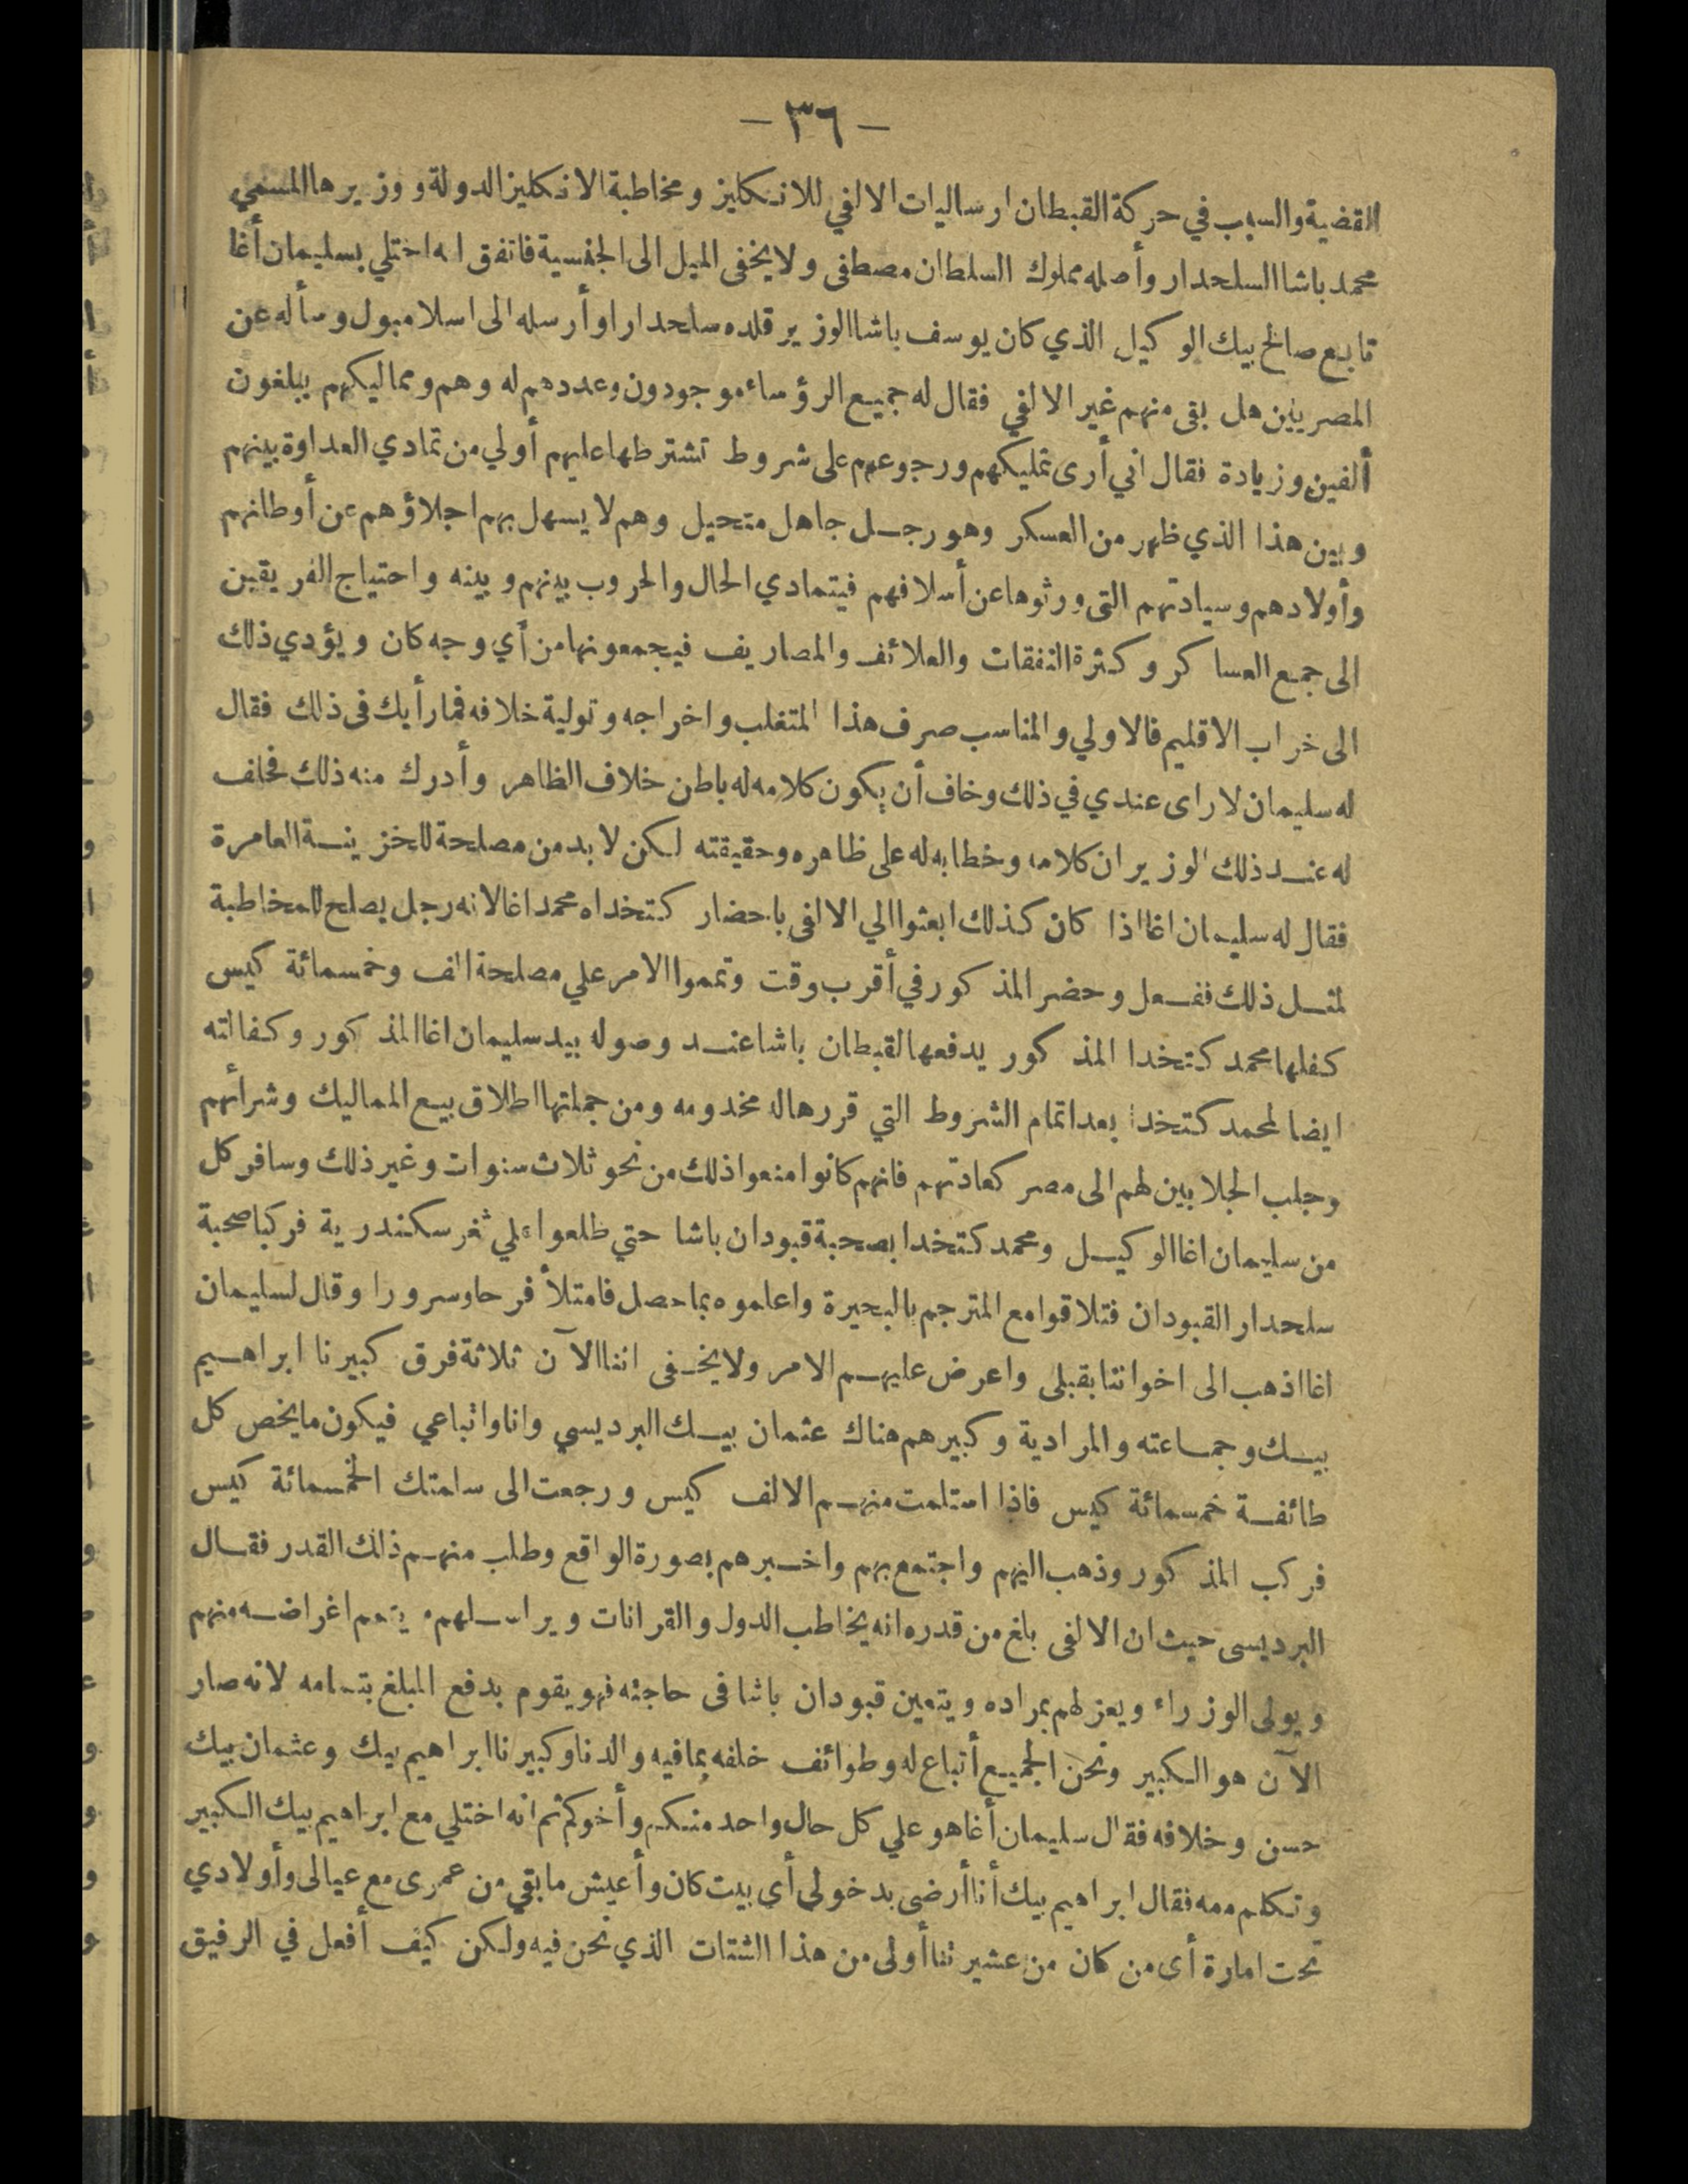 - ٣٦ -
القضية والسبب في حركة القبطان ارساليات الالفي للانكليز ومخاطبة الانكليز الدولة ووزيرها المسمي
محمد باشا السلحدار وأصله مملوك السلطان مصطفى ولا يخفى الميل الى الجنسية فاتفق انه اختلي بسليمان أغا
تابع صالح بيك الوكيل الذي كان يوسف باشا الوزير قلده سلحدارا وأرسله الى اسلامبول وسأله عن
المصريين هل بقى منهم غير الالفي فقال له جميع الرؤساء موجودون وعددهم له وهم ومماليكهم يبلغون
ألفين وزيادة فقال اني أرى تمليكهم ورجوعهم على شروط تشترطها عليهم أولي من تمادي العداوة بينهم
وبين هذا الذي ظهر من العسكر وهو رجل جاهل متحيل وهم لا يسهل بهم اجلاؤهم عن أوطانهم
وأولادهم وسيادتهم التى ورثوها عن أسلافهم فيتمادي الحال والحروب بينهم وبينه واحتياج الفريقين
الى جمع العساكر وكثرة النفقات والعلائف والمصاريف فيجمعونها من أي وجه كان ويؤدي ذلك
الى خراب الاقليم فالاولي والمناسب صرف هذا المتغلب واخراجه وتولية خلافه فما رأيك فى ذلك فقال
له سليمان لا راى عندي في ذلك وخاف أن يكون كلامه له باطن خلاف الظاهر وأدرك منه ذلك فحلف
له عند ذلك الوزير ان كلامه وخطابه له على ظاهره وحقيقته لكن لا بد من مصلحة للخزينة العامرة
فقال له سليمان اغا اذا كان كذلك ابعثوا الي الالفى باحضار كتخداه محمد اغا لانه رجل يصلح للمخاطبة
لمثل ذلك ففعل وحضر المذكور في أقرب وقت وتمموا الامر علي مصلحة الف وخمسمائة كيس
كفلها محمد كتخدا المذكور يدفعها القبطان باشا عند وصوله بيد سليمان اغا المذكور وكفالته
ايضا لمحمد كتخدا بعد اتمام الشروط التي قررها له مخدومه ومن جملتها اطلاق بيع المماليك وشرائهم
وجلب الجلابين لهم الى مصر كعادتهم فانهم كانوا منعوا ذلك من نحو ثلاث سنوات وغير ذلك وسافر كل
من سليمان اغا الوكيل ومحمد كتخدا بصحبة قبودان باشا حتي طلعوا علي ثغر سكندرية فركبا صحبة
سلحدار القبودان فتلاقوا مع المترجم بالبحيرة واعلموه بما حصل فامتلأ فرحا وسرورا وقال لسليمان
اغا اذهب الى اخواننا بقبلى واعرض عليهم الامر ولا يخفى اننا الآن ثلاثة فرق كبيرنا ابراهيم
بيك وجماعته والمرادية وكبيرهم هناك عثمان بيك البرديسي وانا واتباعي فيكون ما يخص كل
طائفة خمسمائة كيس فاذا استلمت منهم الالف كيس ورجعت الى سلمتك الخمسمائة كيس
فركب المذكور وذهب اليهم واجتمع بهم واخبرهم بصورة الواقع وطلب منهم ذلك القدر فقال
البرديسى حيث ان الالفى بلغ من قدره انه يخاطب الدول والقرانات ويراسلهم ويتمم اغراضه منهم
ويولى الوزراء ويعزلهم بمراده ويتعين قبودان باشا فى حاجته فهو يقوم بدفع المبلغ بتمامه لانه صار
الآن هو الكبير ونحن الجميع أتباع له وطوائف خلفه بما فيه والدنا وكبيرنا ابراهيم بيك وعثمان بيك
حسن وخلافه فقال سليمان أغا هو علي كل حال واحد منكم وأخوكم ثم انه اختلي مع ابراهيم بيك الكبير
وتكلم معه فقال ابراهيم بيك أنا أرضى بدخولى أى بيت كان وأعيش ما بقي من عمرى مع عيالى وأولادي
تحت امارة أى من كان من عشيرتنا أولى من هذا الشتات الذي نحن فيه ولكن كيف أفعل في الرفيق